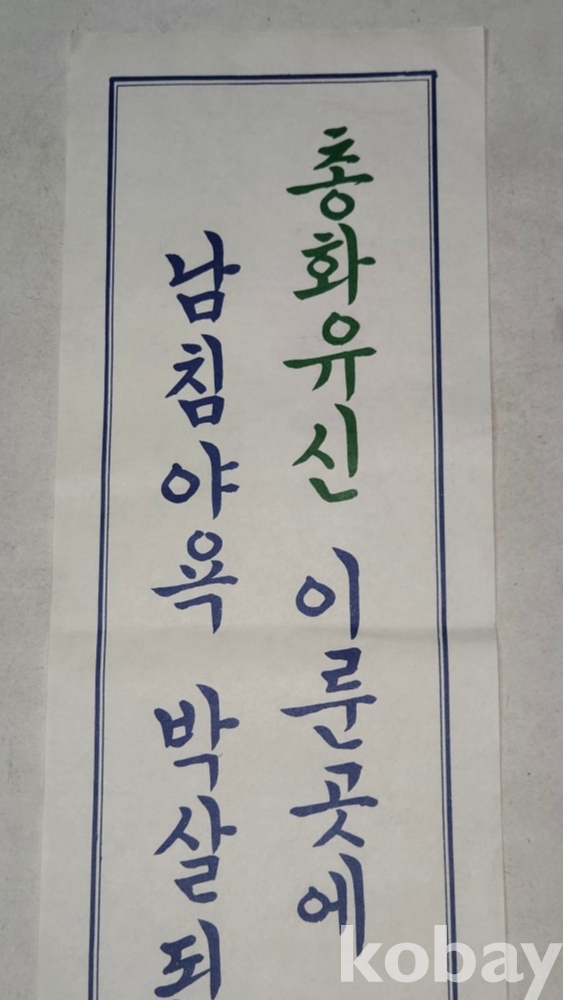 총화유신 이룬곳에
남침야욕 박살되
kobay